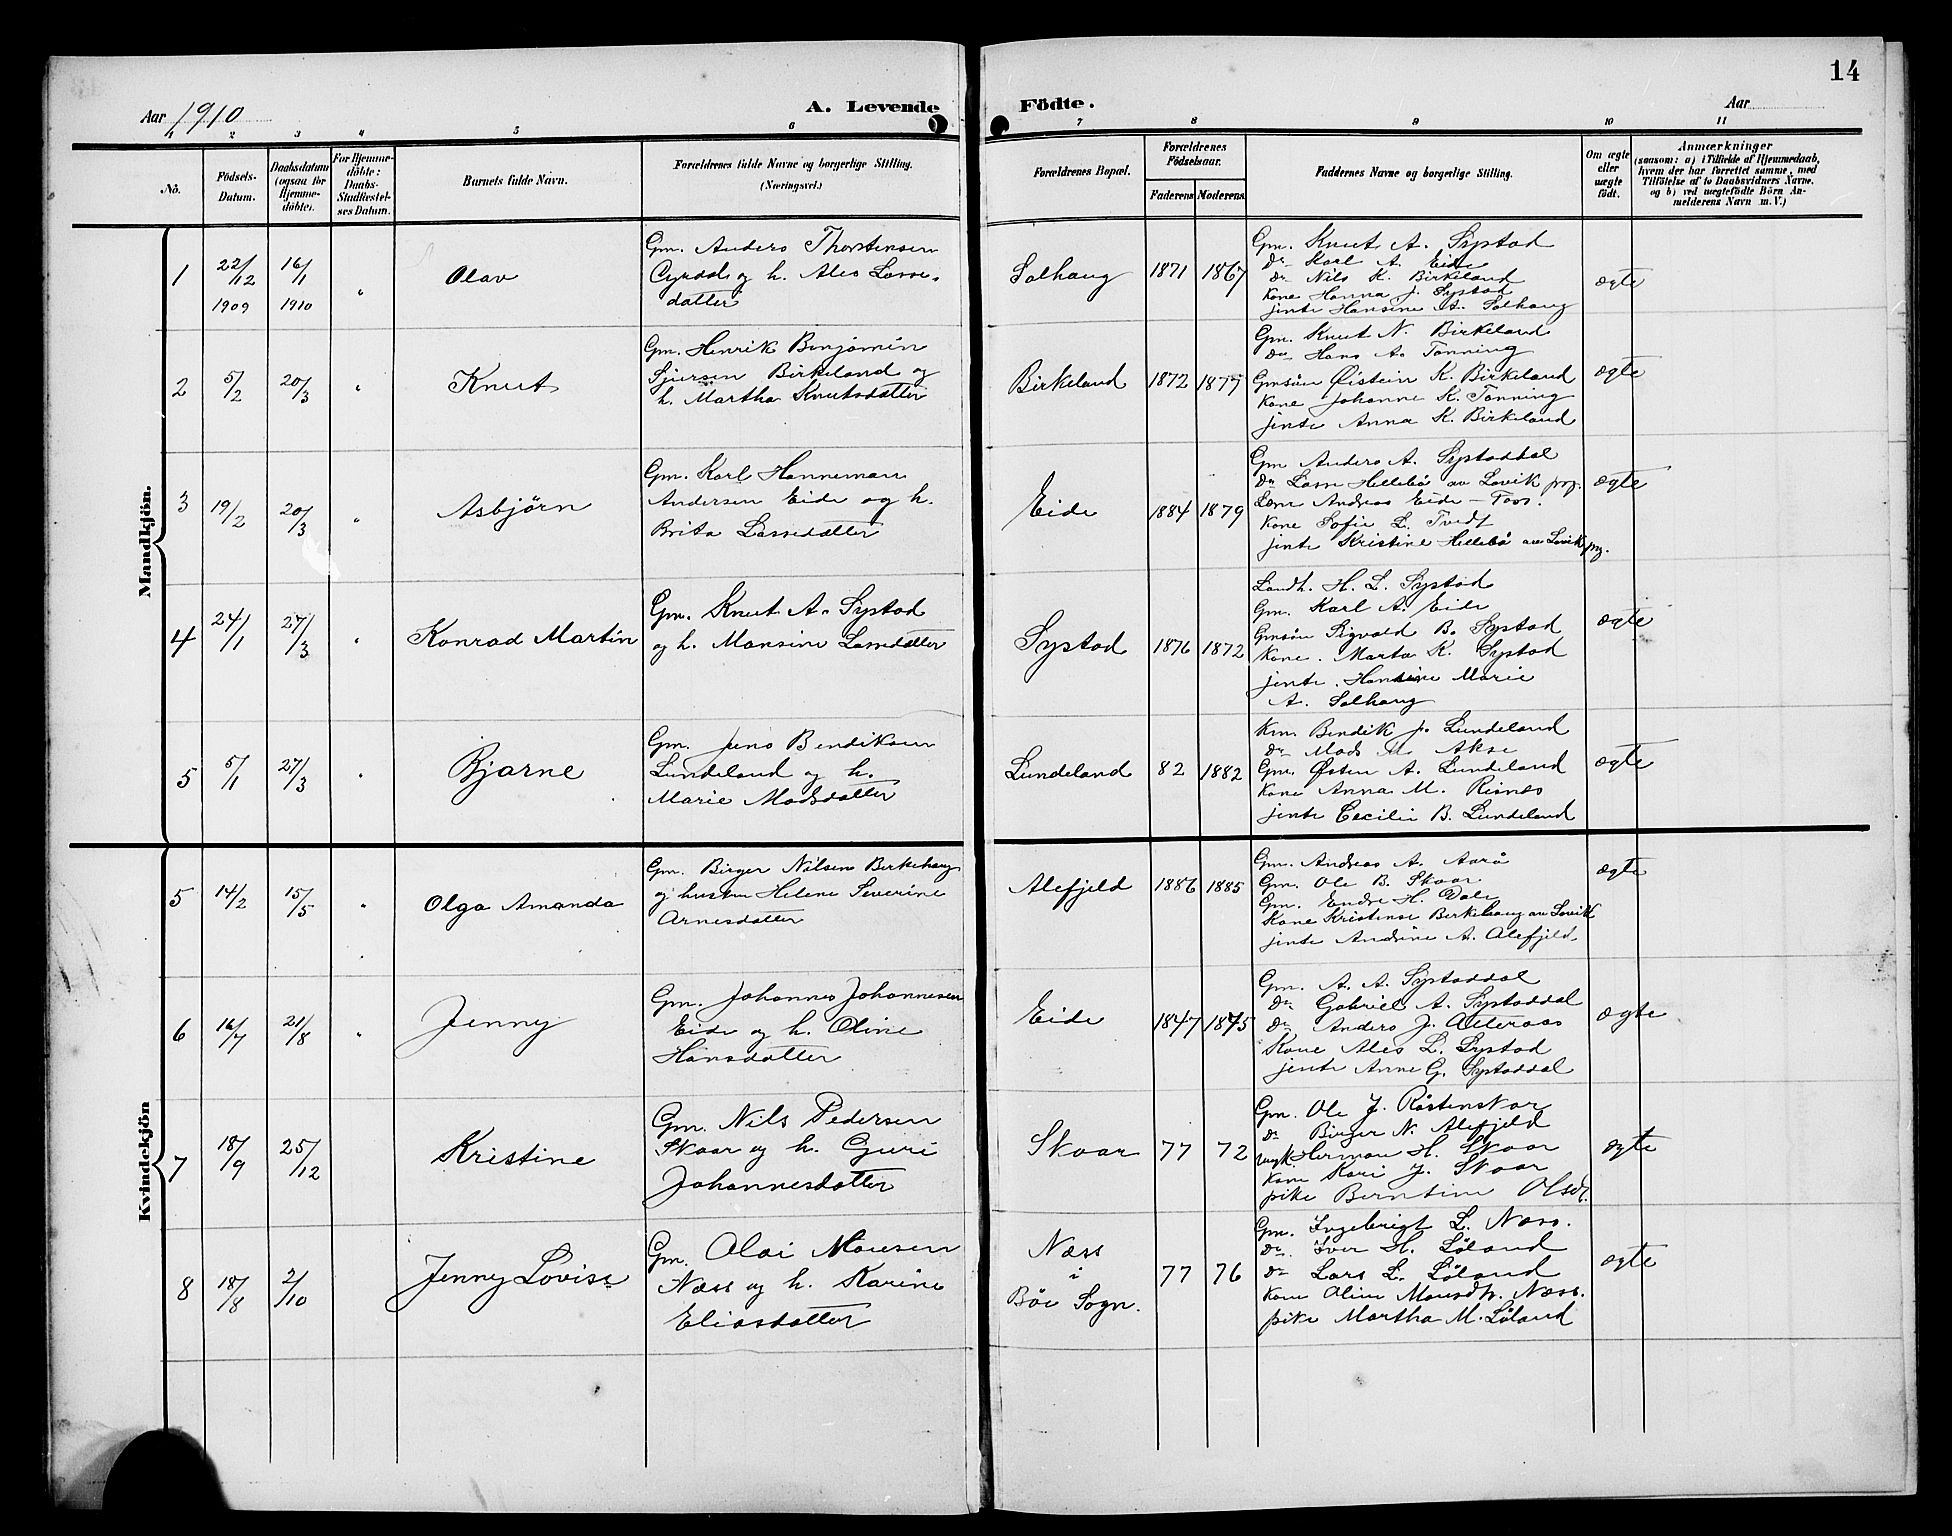 14
Aar 1910
A. Levende Födte.
Aar
1 2 3 4 5 6 7 8 9 10 11
No.
Födsels-Datum.
Daabsdatum (ogsaa for Hjemme-döbte).
For Hjemme-döbte: Daabs-Stadfestel-ses Datum.
Barnets fulde Navn.
Forældrenes fulde Navne og borgerlige Stilling.
(Næringsvei.)
Forældrenes Bopæl.
Forældrenes Födselsaar.
Faderens Moderens
Faddernes Navne og borgerlige Stilling.
Om ægte eller uægte födt.
Anmærkninger
(saasom: a) i Tilfælde af Hjemmedaab, hvem der har forrettet samme, med Tilföielse af to Daabsvidners Navne, og b) ved uægtefödte Börn Anmelderens Navn m. V.)
Mandkjön.
1
22/12 1909
16/1 1910
"
Olav
Gm. Anders Thorstensen
og h. Ales Lasse-
datter
Solhaug
1871
1867
Gm. Knut A. Systad
Do Karl A. Eide
Do Nils K. Birkeland
Kone Hanna J. Systad
jente Hansine A. Solhaug
ægte
2
5/2
20/3
"
Knut
Gm. Henrik Benjamin
Sjursen Birkeland og
h. Martha Knutsdatter
Birkeland
1872
1877
Gm. Knut N. Birkeland
Do Hans A. Tonning
Gmsön Øistein K. Birkeland
Kone Johanne K. Tonning
jente Anna K. Birkeland
ægte
3
19/2
20/3
"
Asbjörn
Gm. Karl Hanneman
Andersen Eide og h.
Brita Lassedatter
Eide
1884
1879
Gm Anders A. Systaddal
Do Lasse Hellebö av Lavik prg.
Andreas Eide
Kone Sofie L. Tvedt
jente Kristine Hellebö av Lavik prg.
ægte
4
24/1
27/3
"
Konrad Martin
Gm. Knut A. Systad
og h. Mansine Lassedatter
Systad
1876
1872
Landh. H. L. Systad
Gm. Karl A. Eide
Gmsön Sigvald B. Systad
Kone. Marta K. Systad
jente. Hansine Marie
A. Solhaug
ægte
5
5/1
27/3
"
Bjarne
Gm. Jens Bendiksen
Lundeland og h.
Marie Madsdatter
Lundeland
82
1882
Km. Bendik J. Lundeland
Do Mads M. Akse
Gm. Østen A. Lundeland
Kone Anna M. Risnes
jente Cecilie B. Lundeland
ægte
Kvindekjön
5
14/2
15/5
"
Olga Amanda
Gm. Birger Nilsen Birkehaug
og hustru Helene Severine
Arnesdatter
Alefjeld
1886
1885
Gm. Andreas A. Aarö
Gm. Ole B. Skaar
Gm. Endre H. Dale
Kone Kristense Birkehaug av Lavik
jente Andrine A. Alefjeld.
ægte
6
16/7
21/8
"
Jenny
Gm. Johannes Johannesen
Eide og h. Oline
Hansdatter
Eide
1847
1875
Gm. A. A. Systaddal
Do Gabriel A. Systaddal
Do Anders J. Alteraas
Kone Ales L. Systad
jente Anne G. Systaddal
ægte
7
18/9
25/12
Kristine
Gm. Nils Pedersen
Skaar og h. Guri
Johannesdatter
Skaar
77
72
Gm. Ole J. Råstenskar
Do Birger N. Alefjeld
ungk. Herman H. Skaar
Kone Kari J. Skaar
pike Berntine Olsdt.
ægte
8
18/8
2/10
Jenny Lovise
Gm. Olai Monsen
Næss og h. Karine
Eliasdatter
Næss
i
Böe Sogn.
77
76
Gm. Ingebrigt L. Næss.
Do. Iver H. Löland
Do Lars L. Löland
Kone Oline Monsdtr. Næss.
pike Martha M. Löland
ægte